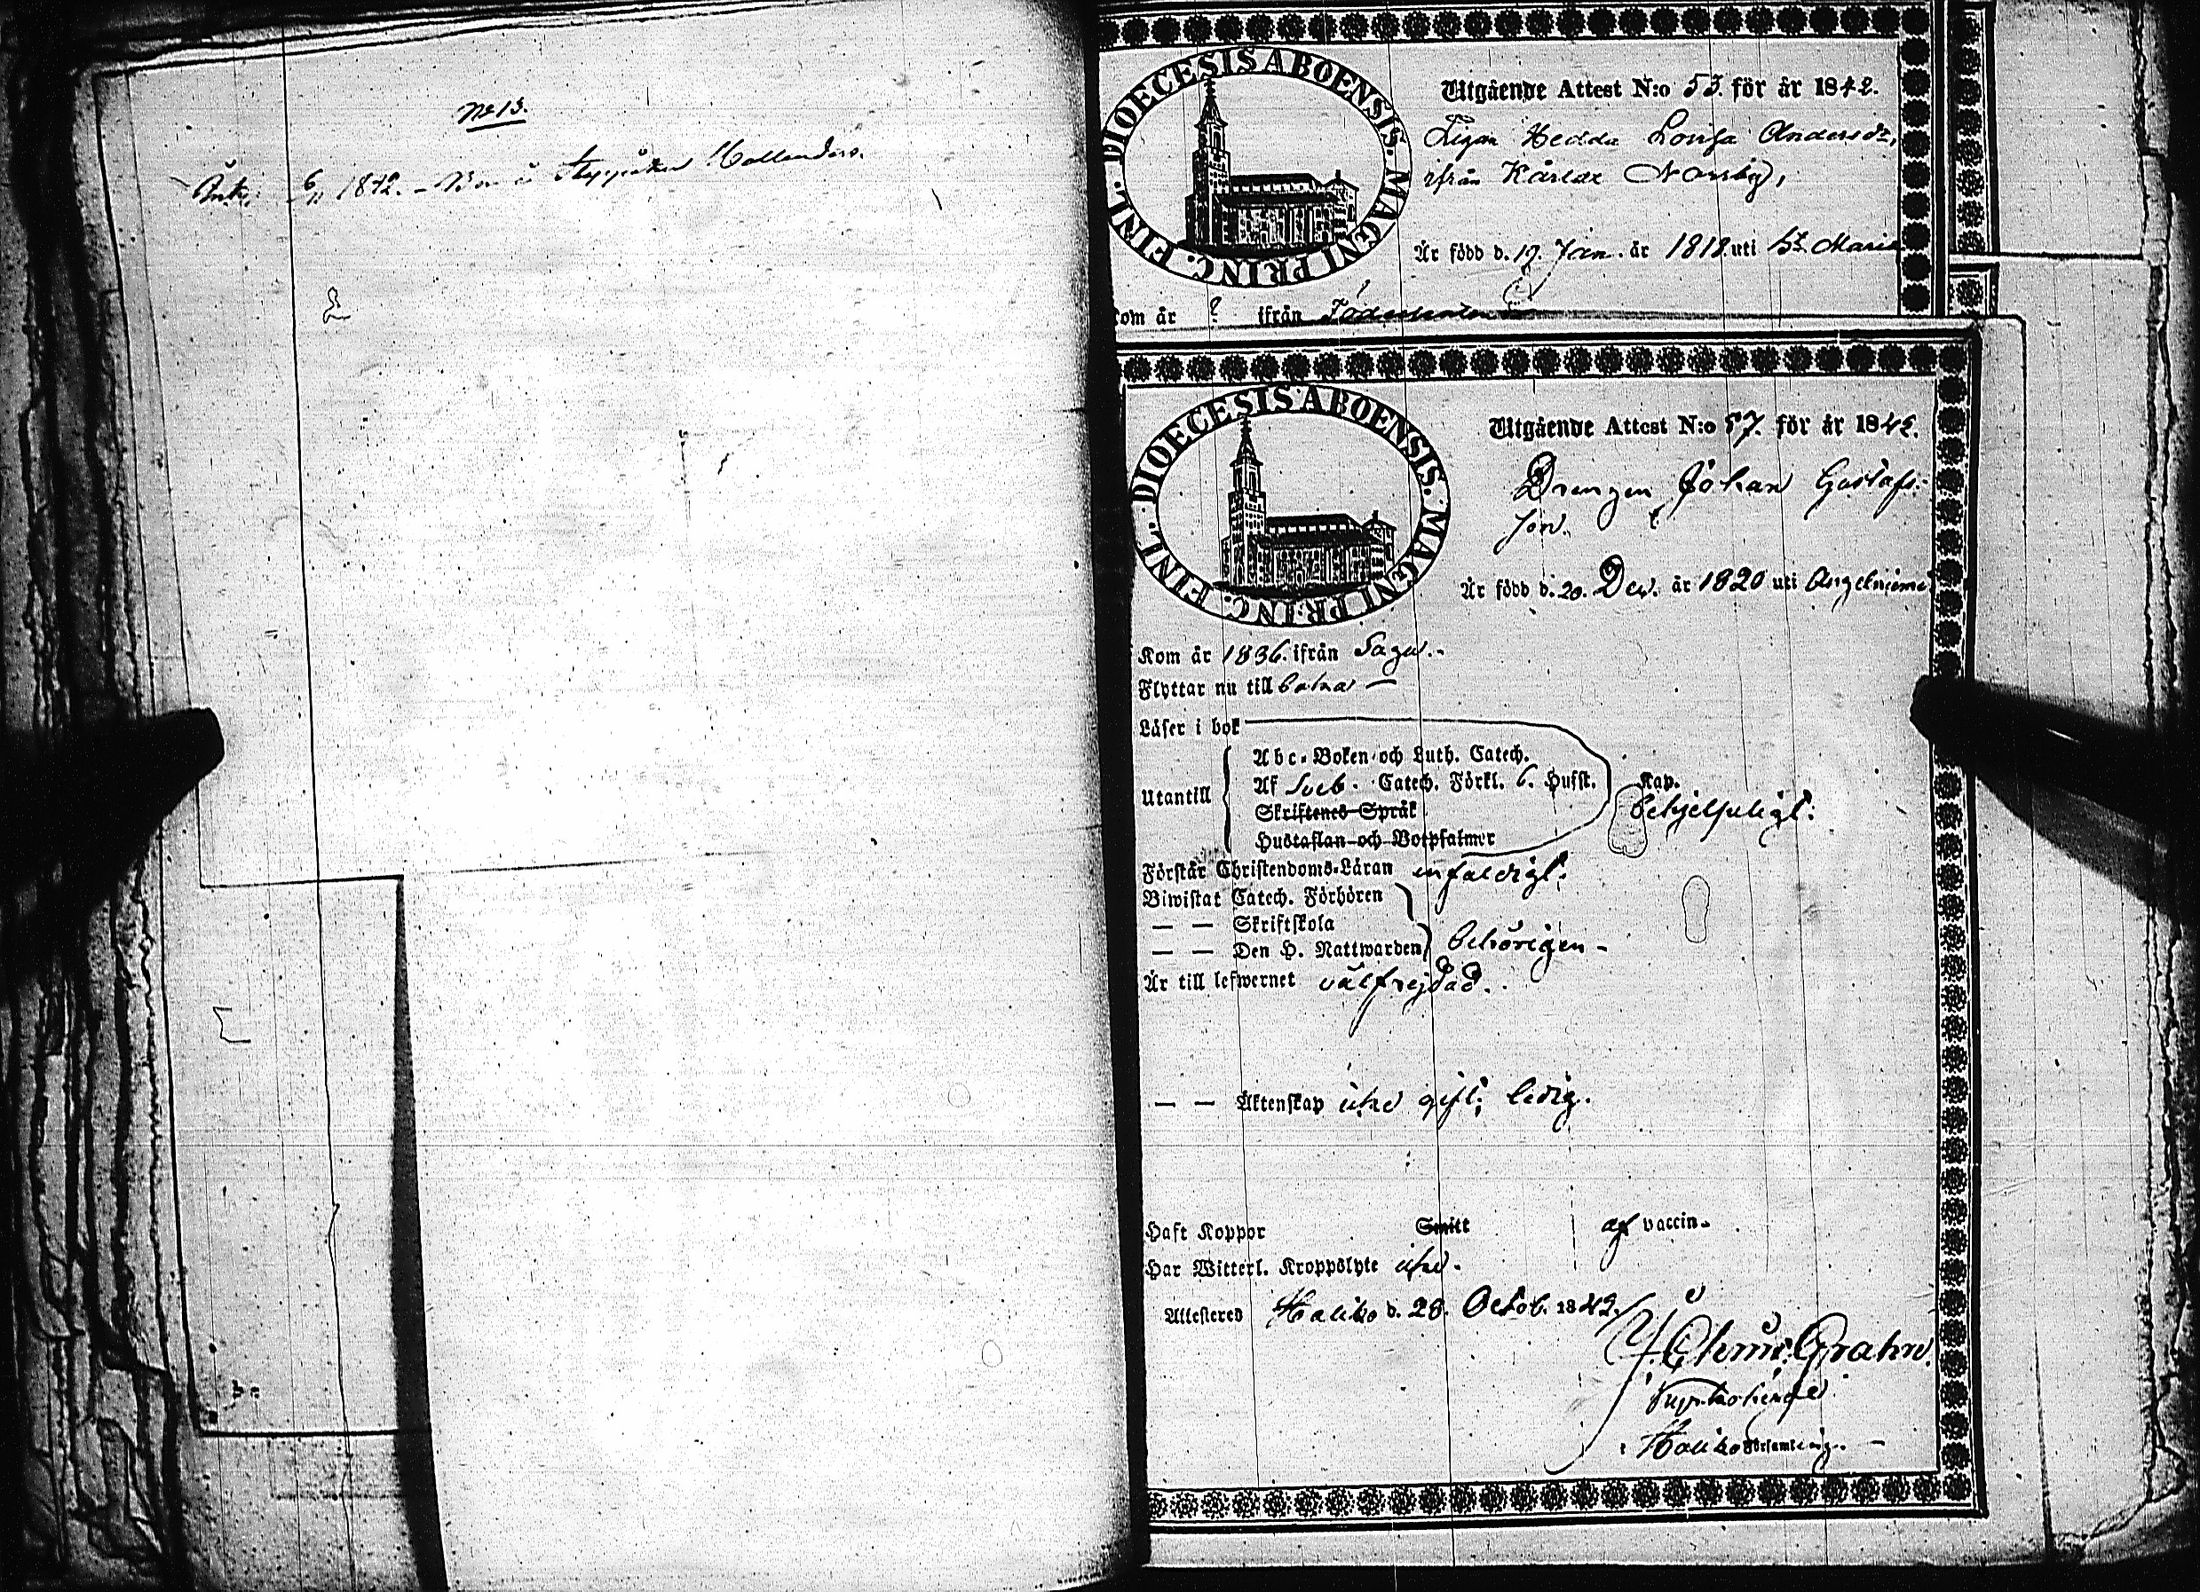 No 13.
Ank. 6/11 1842. – Bor å
DIOECESIS ABOENSIS. MAGNI PRINC. FINL.
Utgående Attest N:o 53. för år 1842.
Pigan Hedda Lovisa Andersdr,
ifrån Kärlax Norrby,
Är född d. 19. Jan. år 1818. uti St. Marie
Kom år ? ifrån
DIOECESIS ABOENSIS. MAGNI PRINC. FINL.
Utgående Attest N:o 57. för år 1842.
Drengen Johan Gustafs-
son.
Är född d. 20. Dec. år 1820 uti Angelniemi
Kom år 1836. ifrån Sagu.-
Flyttar nu till
Läser i bok
Utantill
Abc-Boken och Luth. Catech.
Af Sveb. Catech. Förkl. 6. Hufst. Kap.
Skriftenes Språk
behjelpligt.
Hustaflan och Botpsalmer
Förstår Christendoms-Läran enfaldigt.
Biwistat Catech. Förhören
— — Skriftskola
— — Den H. Nattwarden behörigen -
Är till lefwernet välfrejdad.
— — Äktenskap icke gift; ledig.
Haft Koppor Smitt af vaccin-
Har Witterl. Kroppslyte icke.
Attesteras Haliko d. 28. Octob. 1842.
Grahn.
Haliko Församling. —